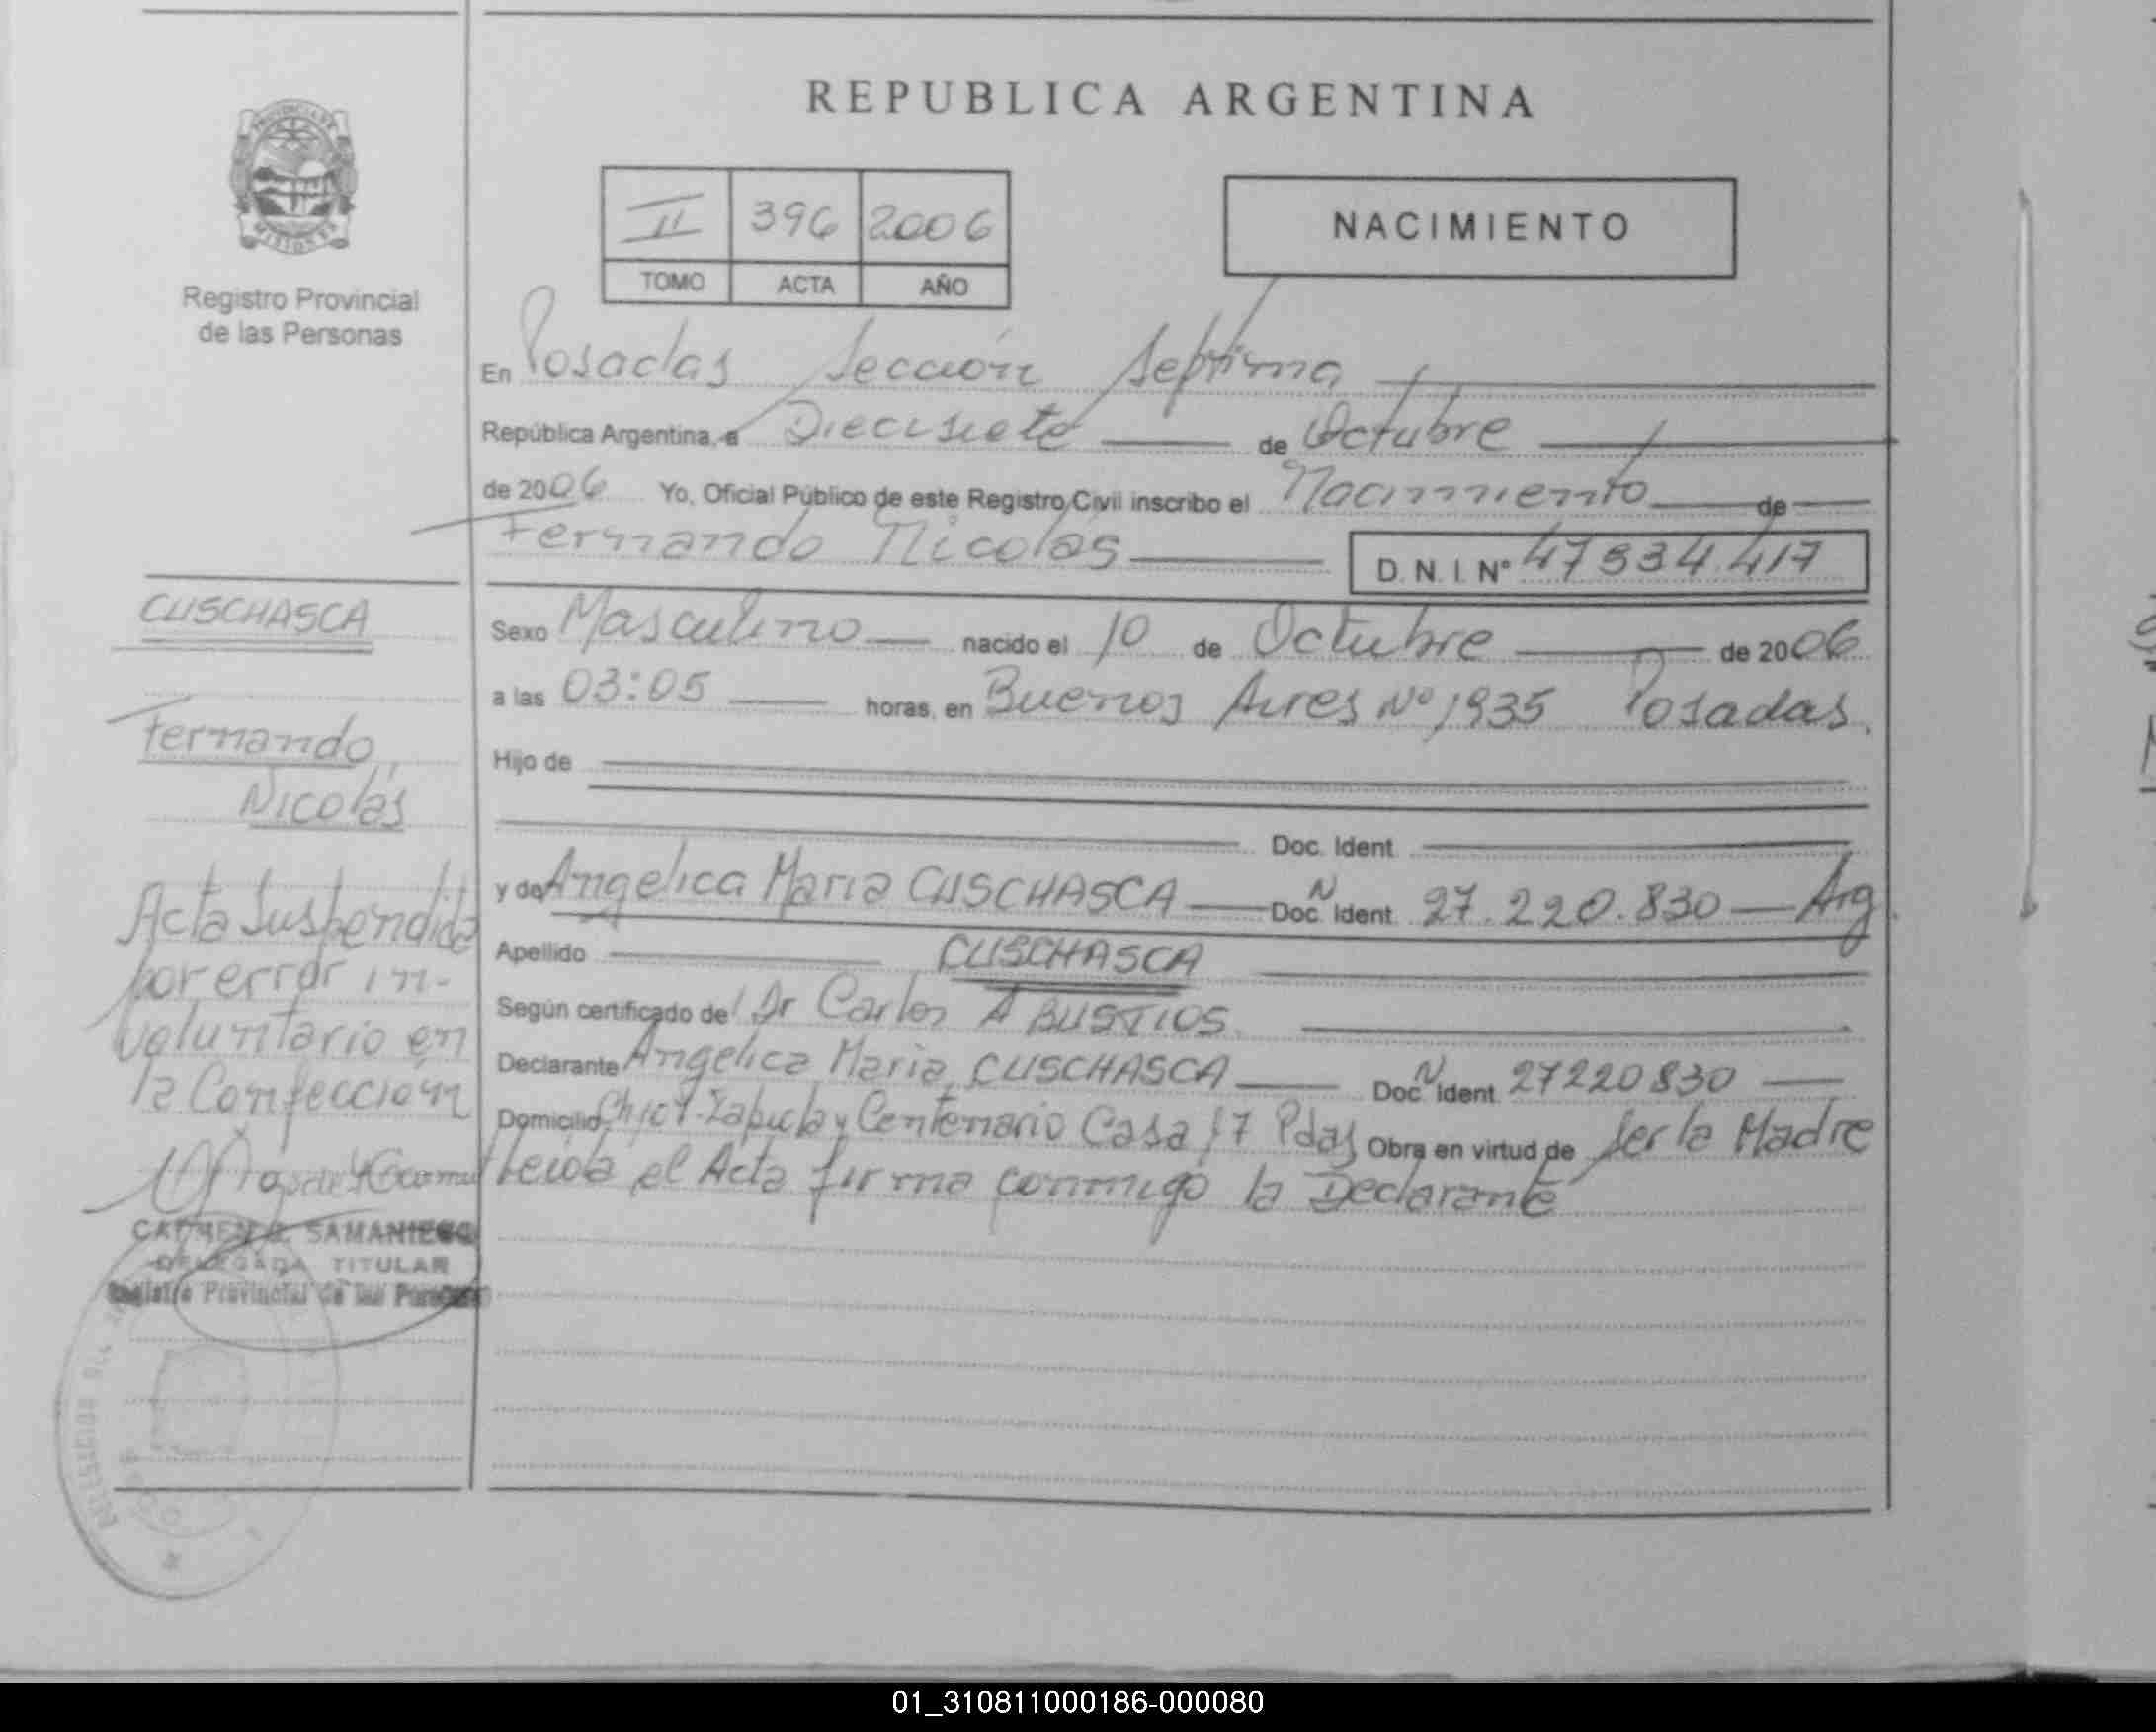 REPUBLICA ARGENTINA
PROVINCIA DE
MISIONES
Registro Provincial
de las Personas
II 396 2006
TOMO ACTA AÑO
NACIMIENTO
En Posadas Sección Septima
República Argentina, a Diecisiete de Octubre
de 2006 Yo, Oficial Público de este Registro Civil inscribo el Nacimiento de
Fernando Nicolás D.N.I. Nº 47534.417
Sexo Masculino nacido el 10 de Octubre de 2006
a las 03:05 horas, en Buenos Aires Nº 1935 Posadas.
Hijo de
Doc. Ident.
y de Angelica Maria CUSCHASCA N Doc. Ident. 27.220.830 Arg.
Apellido CUSCHASCA
Según certificado del Dr Carlos A BUSTIOS.
Declarante Angelica Maria CUSCHASCA N Doc. Ident. 27220830
Domicilio Centenario Casa 17 Pdas Obra en virtud de ser la Madre
Leida el Acta firma conmigo la Declarante
CUSCHASCA
Fernando
Nicolás
Acta Suspendida
por error in-
voluntario en
la Confección
SAMANIEGO
DELEGADA TITULAR
Registro Provincial de las Personas
01_310811000186-000080